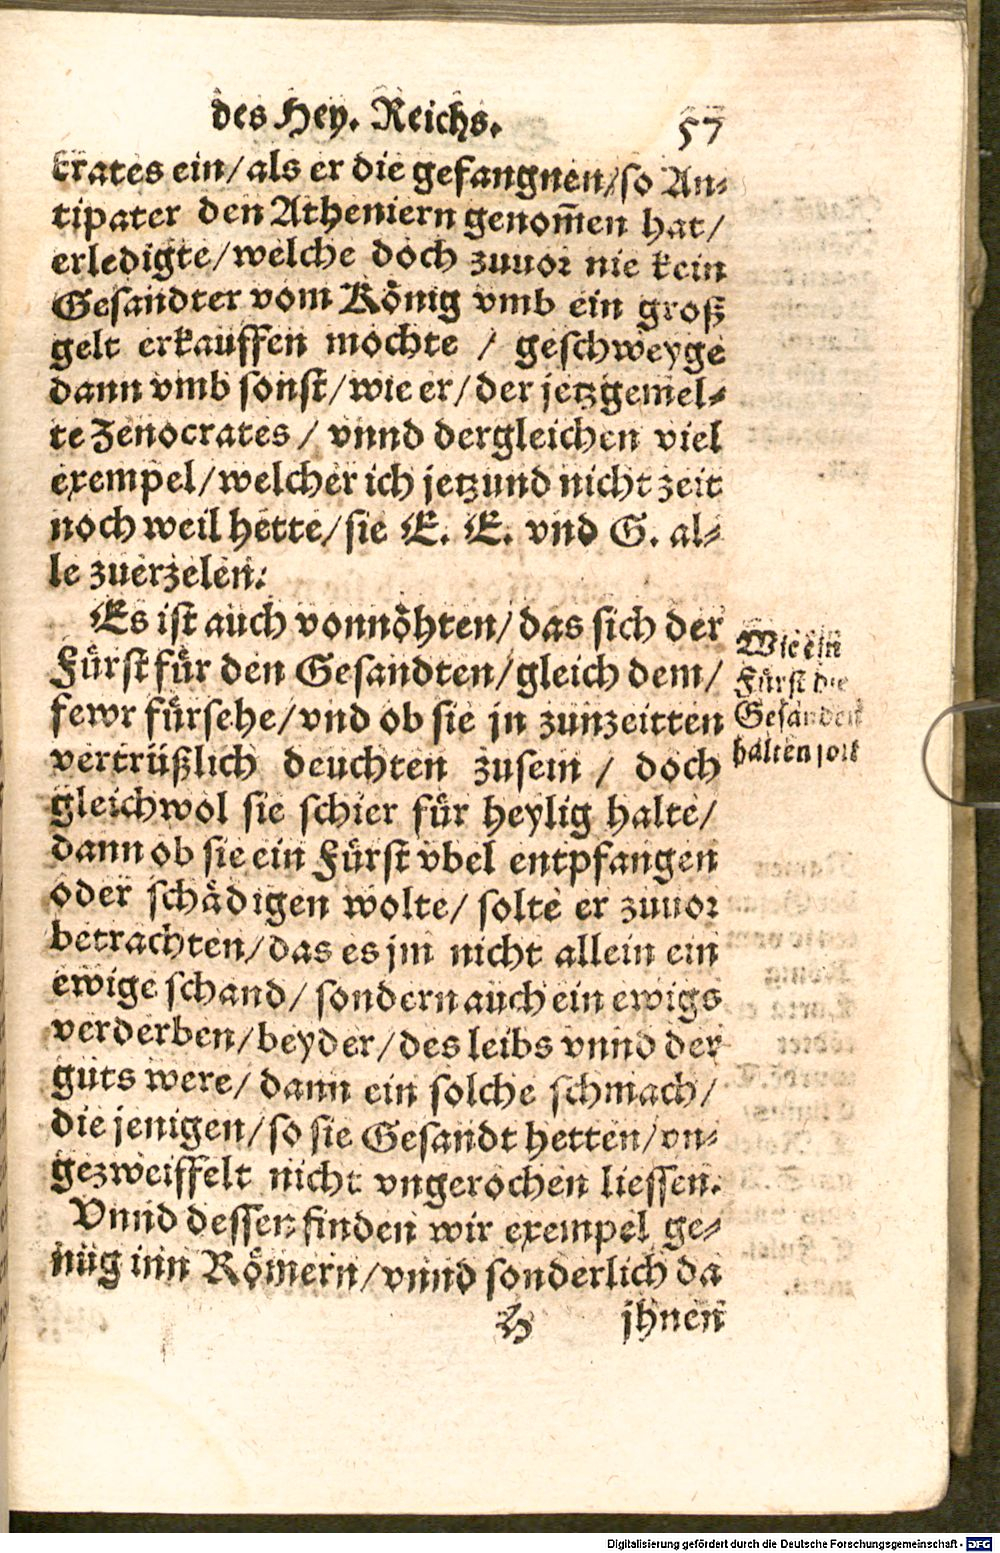 des Hey. Reichs. 57
crates ein/ als er die gefangnen/ so An-
tipater den Atheniern genom̄en hat/
erledigte/ welche doch zuuor nie kein
Gesandter vom König vmb ein groß
gelt erkauffen mochte / geschweyge
dann vmb sonst/ wie er/ der jetzgemel-
te Zenocrates / vnnd dergleichen viel
exempel/ welcher ich jetzund nicht zeit
noch weil hette/ sie E. E. vnd G. al-
le zuerzelen.
Es ist auch vonnöhten/ das sich der
Fürst für den Gesandten/ gleich dem/
fewr fürsehe/ vnd ob sie jn zunzeitten
vertrüßlich deuchten zusein / doch
gleichwol sie schier für heylig halte/
dann ob sie ein Fürst vbel entpfangen
oder schädigen wolte/ solte er zuuor
betrachten/ das es jm nicht allein ein
ewige schand/ sondern auch ein ewigs
verderben/ beyder/ des leibs vnnd der
guts were/ dann ein solche schmach/
die jenigen/ so sie Gesandt hetten/ vn-
gezweiffelt nicht vngerochen liessen.
Vnnd dessen finden wir exempel ge-
nug inn Römern/ vnnd sonderlich da
H jhnen
Wie ein
Fürst die
Gesanden
halten soll
Digitalisierung gefördert durch die Deutsche Forschungsgemeinschaft - DFG